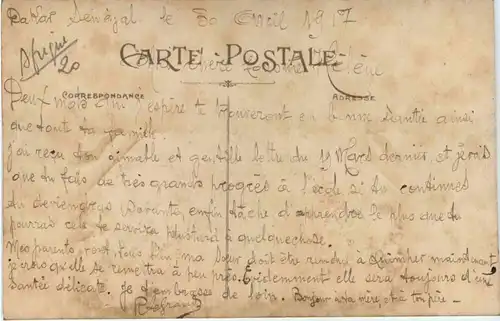 Dakar Sénégal le 30 Avril 1917
Afrique
20
CARTE POSTALE
Ma chère Hélène
CORRESPONDANCE
ADRESSE
Deux mots qui j'espère te trouveront en bonne Santée ainsi
que toute ta famille.
J'ai reçu ton aimable et gentille lettre du 11 Mars dernier, et je vois
que tu fais de très grands progrès à l'école si tu continues
tu deviendras Savante, enfin tâche d'apprendre le plus que tu
pourras cela te servira plus tard à quelque chose.
Mes parents vont tous bien, ma Sœur doit être rendue à Quimper maintenant
je crois qu'elle se remettra à peu près. Évidemment elle sera toujours d'une
santée délicate. Je t'embrasse de loin. Bonjour a ta mère, et à ton père –